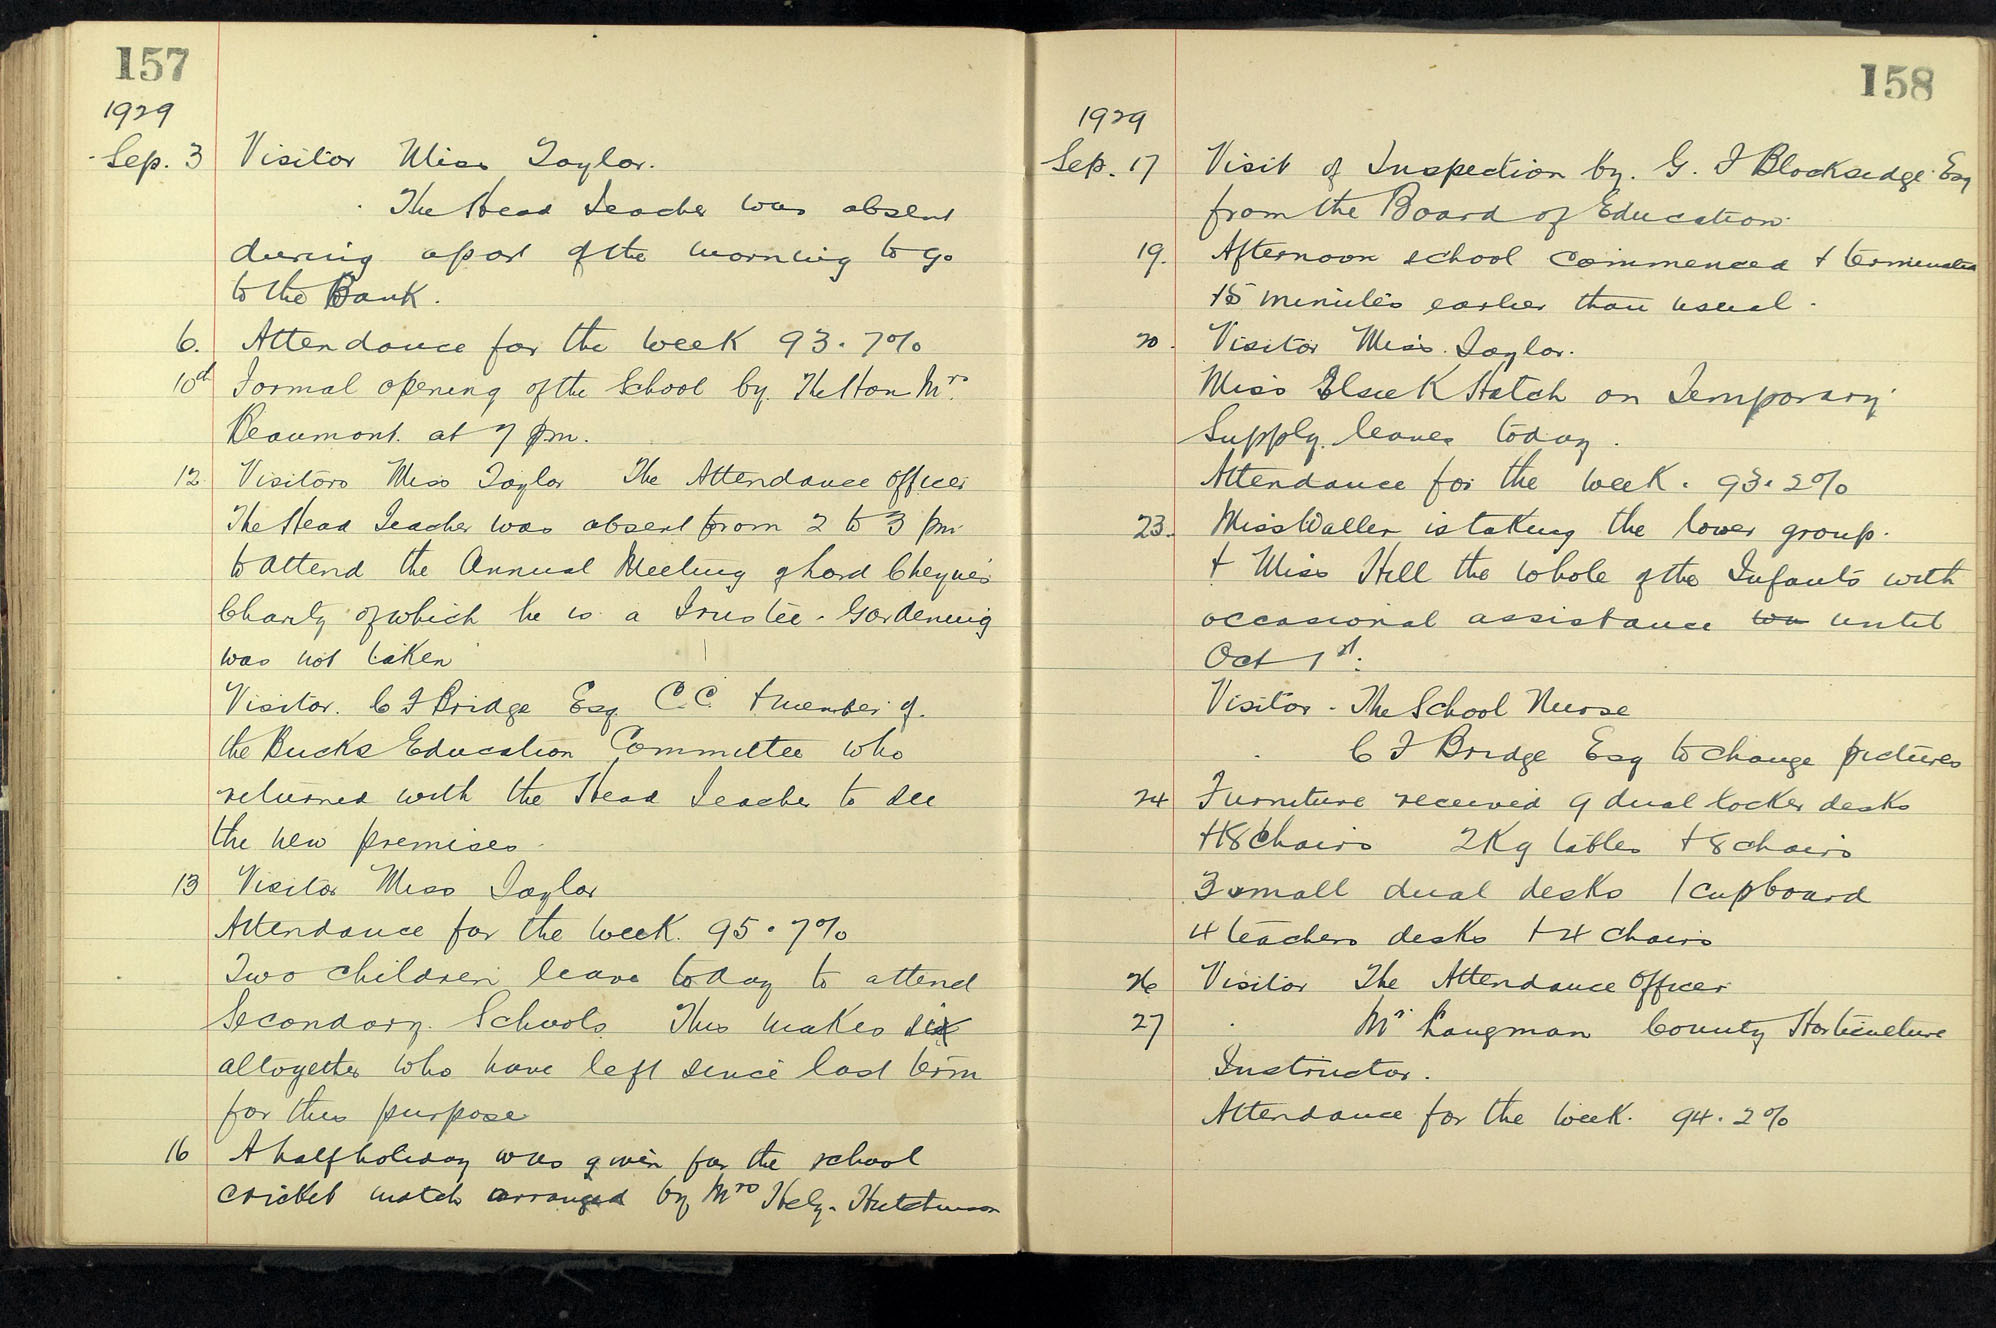 157
1929
Sep. 3 Visitor Miss Taylor.
The Head Teacher was absent
during a part of the morning to go
to the Bank.
6. Attendance for the week 93.7%
10th Formal opening of the School by The Hon Mrs.
Beaumont at 7 pm.
12 Visitors Miss Taylor The Attendance Officer
The Head Teacher was absent from 2 to 3 pm
to attend the Annual Meeting of Lord Cheyne's
Charity of which he is a Trustee. Gardening
was not taken
Visitor. C T Bridge Esq C.C. + member of
the Bucks Education Committee who
returned with the Head Teacher to see
the new premises.
13 Visitor Miss Taylor
Attendance for the week. 95.7%
Two children leave today to attend
Secondary Schools This makes six
altogether who have left since last term
for this purpose
16 A half holiday was given for the school
cricket match arranged by Mrs Hely-Hutchinson
158
1929
Sep. 17 Visit of Inspection by G. T Blocksedge Esq
from the Board of Education.
19. Afternoon school commenced + terminated
15 minutes earlier than usual.
20. Visitor Miss Taylor.
Miss Elsie K Hatch on Temporary
Supply leaves today.
Attendance for the week. 93.2%
23. Miss Waller is taking the lower group.
+ Miss Hill the whole of the Infants with
occasional assistance until
Oct 1st.
Visitor - The School Nurse
C T Bridge Esq to change pictures
24 Furniture received 9 dual locker desks
+ 18 chairs 2 Kg tables + 8 chairs
3 small dual desks 1 cupboard
4 teachers desks + 4 chairs
26 Visitor The Attendance Officer
27 Mr Langman County Horticulture
Instructor.
Attendance for the week. 94.2%